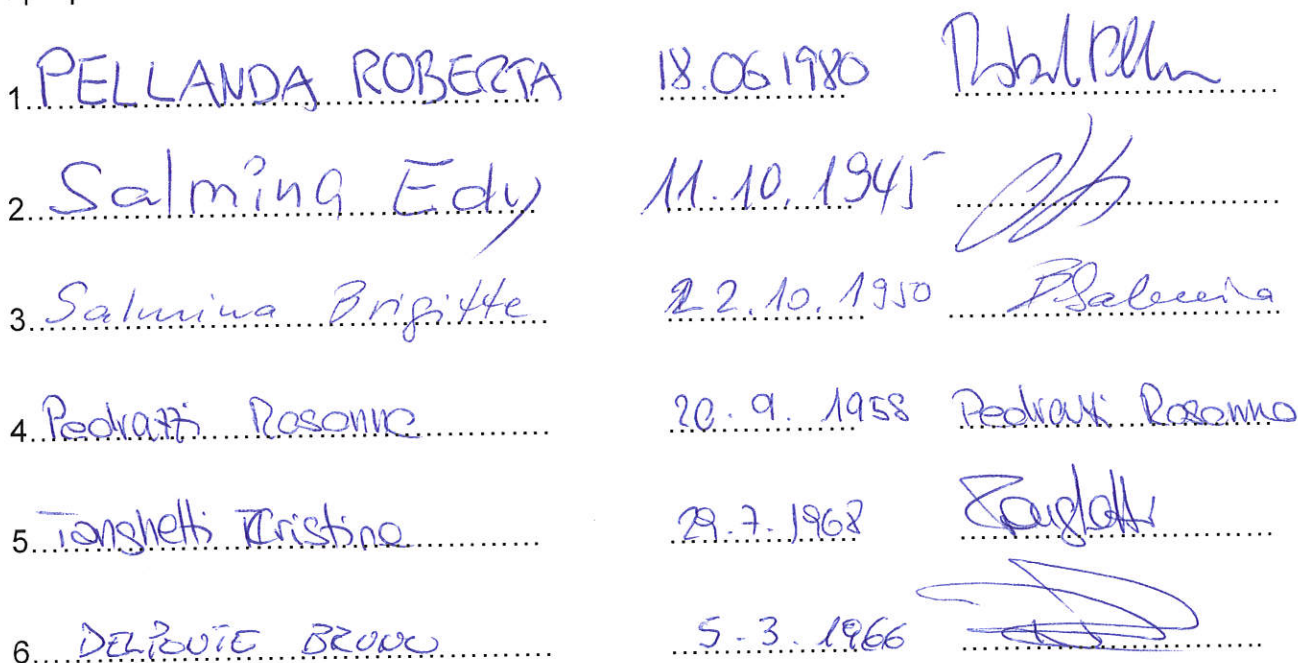 1. PELLANDA ROBERTA 18.06 1980
2. Salmina Edy 11.10.1945
3. Salmina Brigitte 22.10.1950 BSalmina
4. Pedrazzi Rosanna 20.9.1958 Pedrazzi Rosanna
5. Tanghetti Kristina 29.7.1968
6. DELPONTE BRUNO 5.3.1966